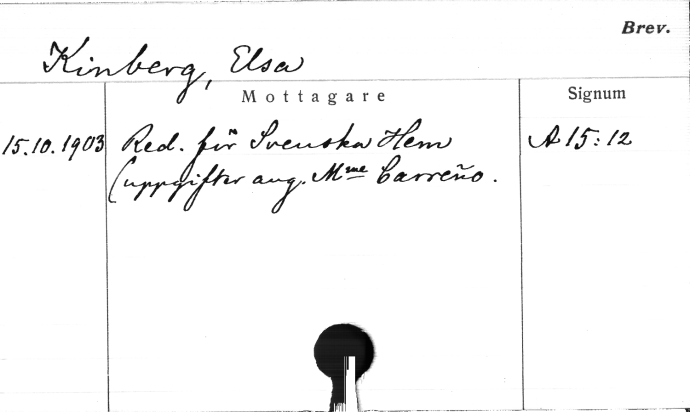 Brev.
Kinberg, Elsa
Mottagare
Signum
15.10.1903 Red. för Svenska Hem A 15:12
(uppgifter ang. Mme Carreño.